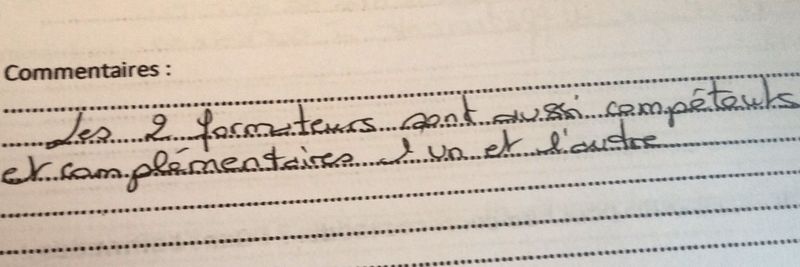 Commentaires :
Les 2 formateurs sont aussi compétents
et complémentaires l'un et l'autre